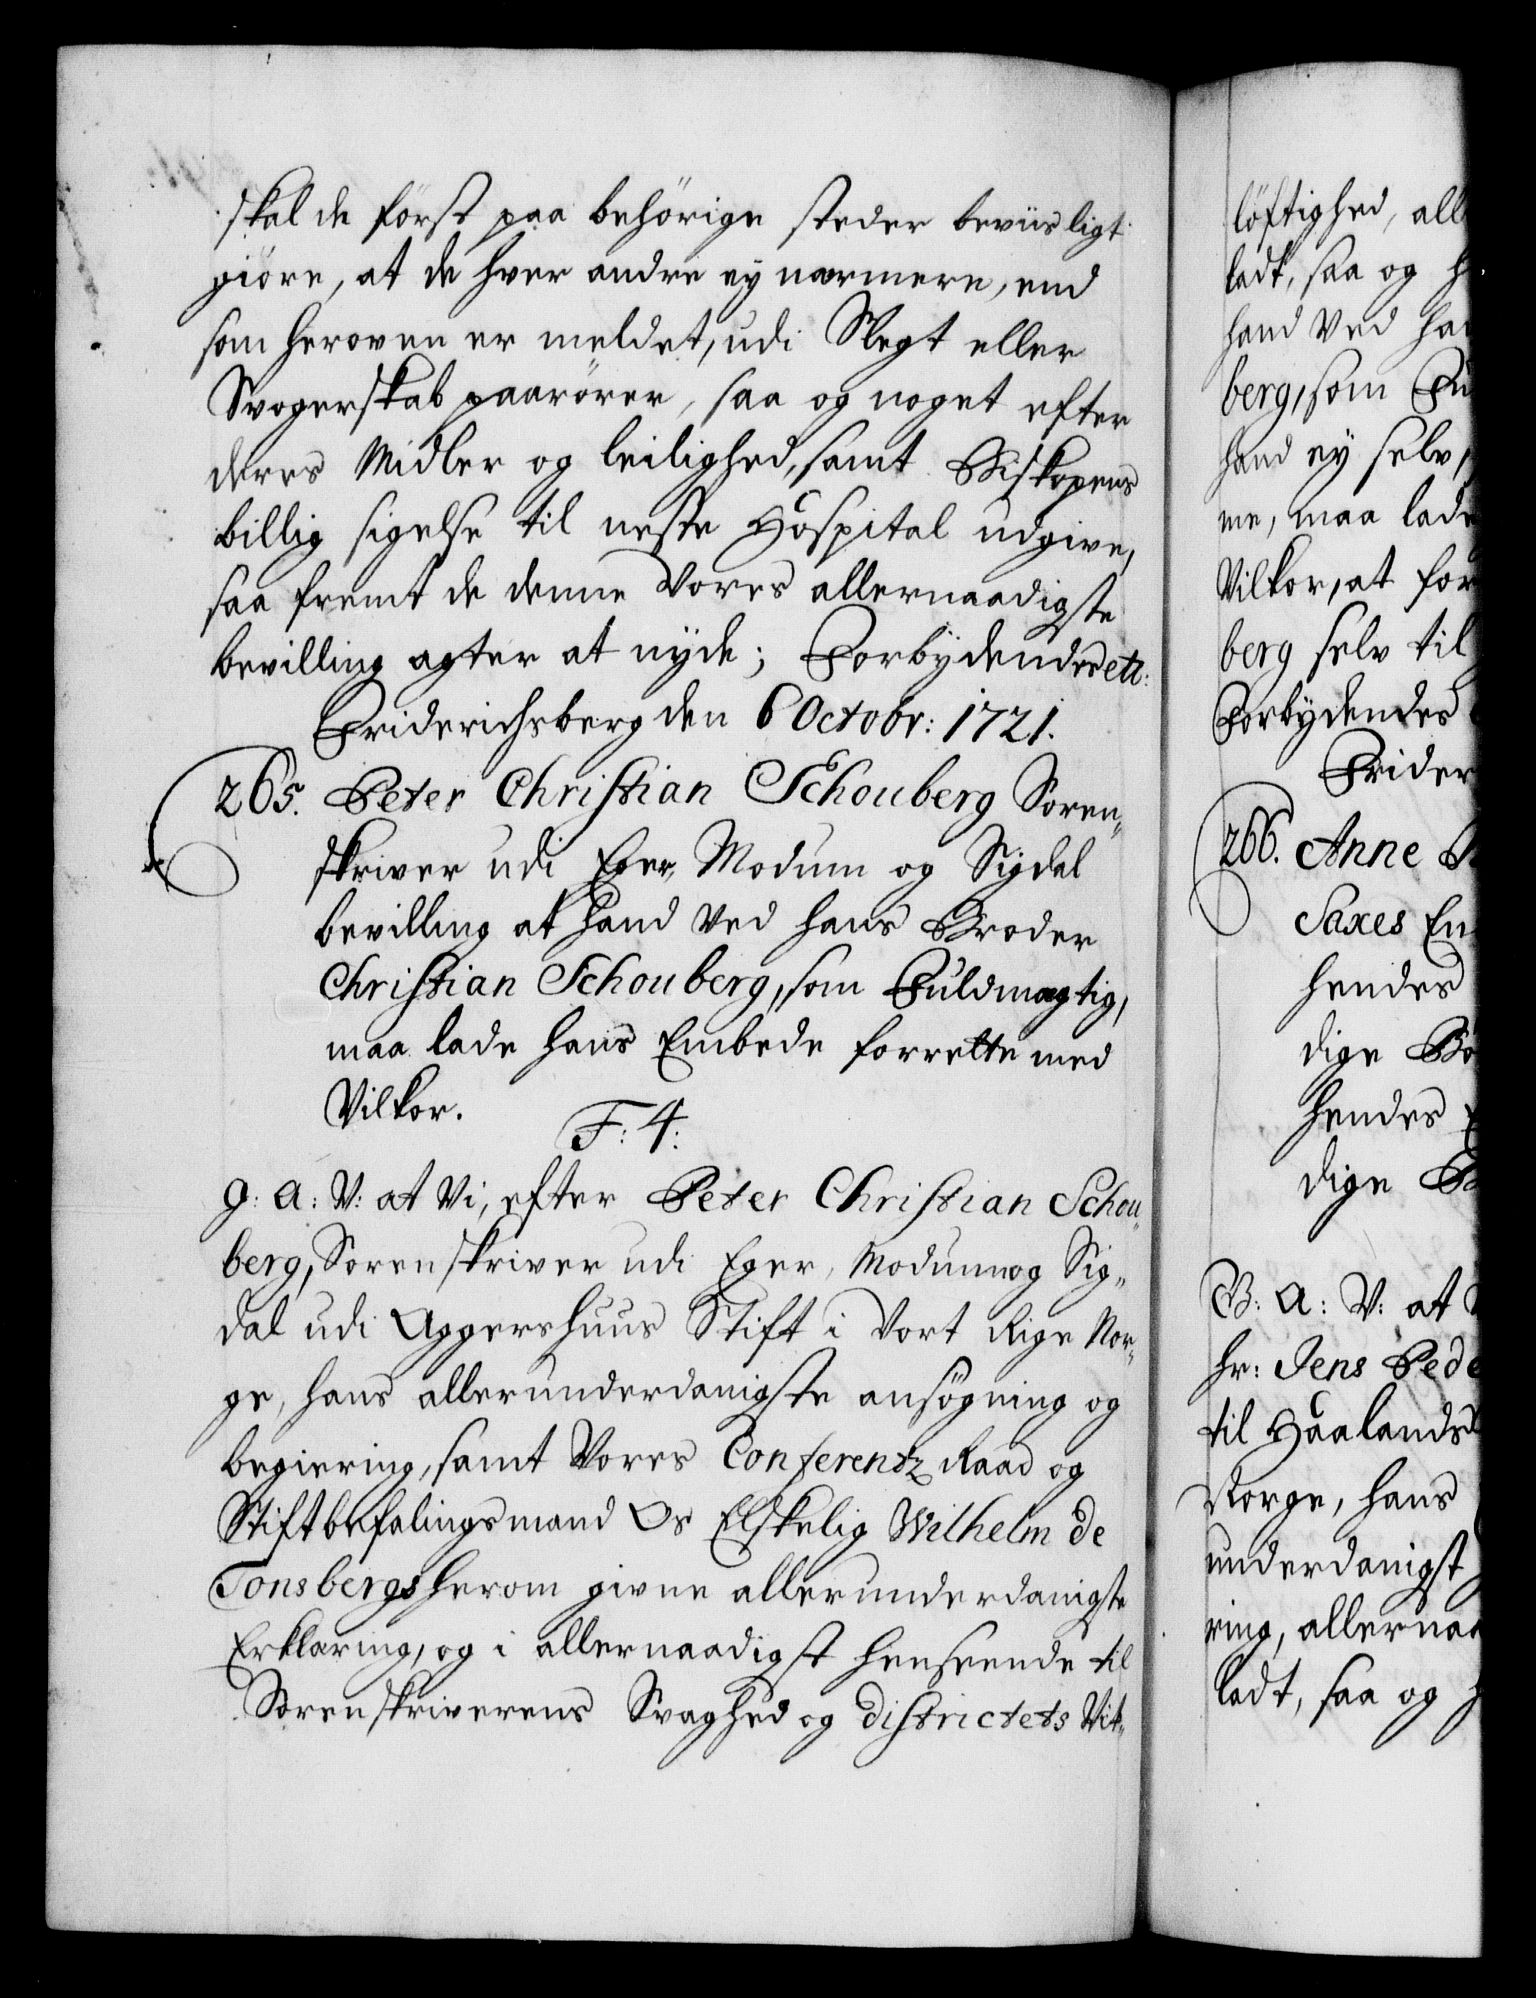 skal de först paa behörige steder beviisligt
giöre, at de hver andre ey nærmere, end
som heroven er meldet, udi Slegt eller
Svogerskab paarörer, saa og noget efter
deres Midler og leilighed, samt Biskopens
billig sigelse til neste Hospital udgive,
saa fremt de denne Vores allernaadigste
bevilling agter at nyde; Forbydendes etc:
Friderichsberg den 6 Octobr: 1721.
265. Peter Christian Schouberg Soren„
skriver udi Eger, Modum og Sigdal
bevilling at hand Ved hans Broder
Christian Schouberg, som Fuldmægtig,
maa lade hans Embede forrette med
Vilkor.
F: 4:
g: a: V: at Vi, efter Peter Christian Schou„
berg, Sorenskriver udi Eger, Modum og Sig„
dal udi Aggershuus Stift i Vort Rige Nor„
ge, hans allerunderdanigste ansögning og
begiering, samt Vores Conferentz Raad og
Stiftbefalingsmand Os Elskelig Wilhelm de
Tonsbergs herom givne allerunderdanigste
Erklæring, og i allernaadigst henseende til
Sorenskriverens Svaghed og districtets Vit„
löftighed, all
ladt, saa og h
hand Ved ha
berg, som Fu
hand ey selv,
me, maa lade
Vilkor, at for
berg selv til
Forbydendes
Frider
266. Anne
Saxes En
hendes
dige Bo
hendes
dige
B: A: V: at V
hr: Jens Pede
til Haalands
Norge, hans
underdanigst
ring, allernaa
ladt, saa og h